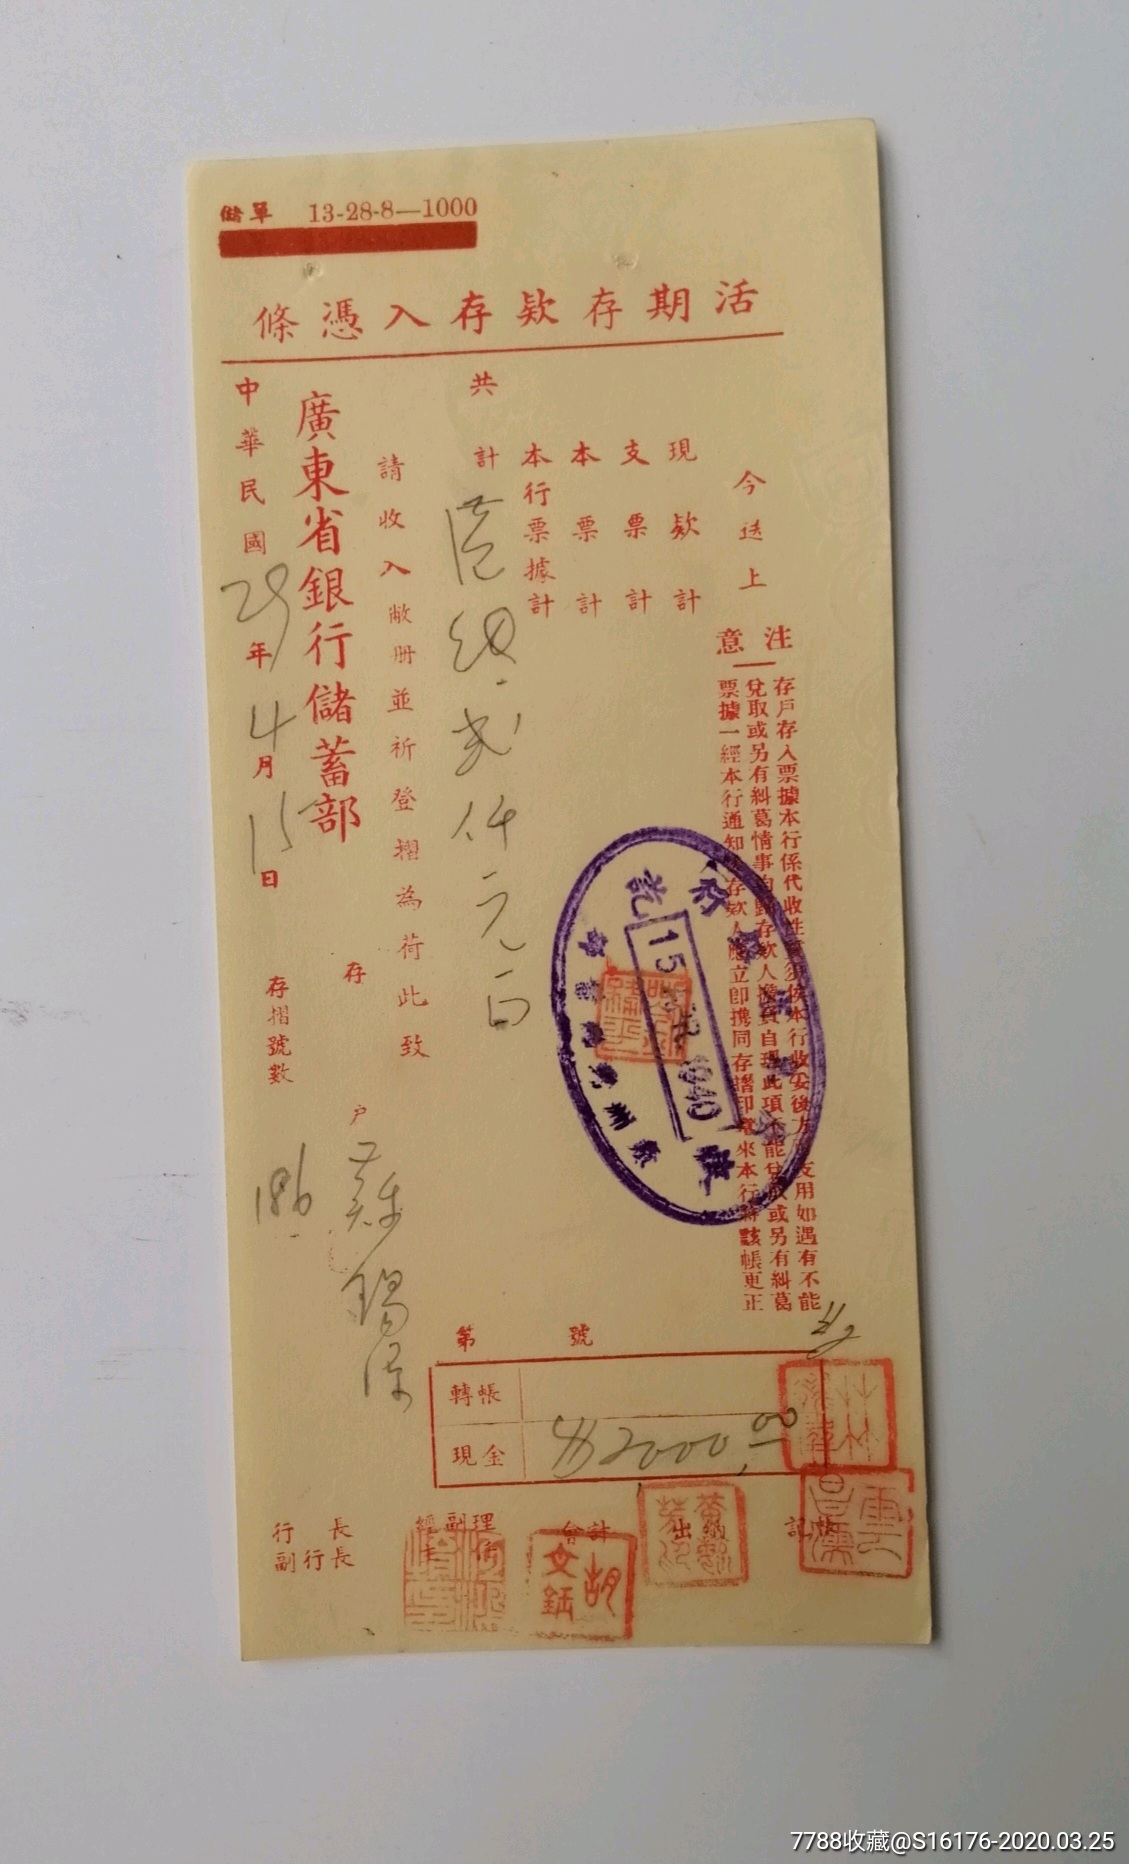 儲單 13-28-8—1000
活期存欵存入憑條
今送上
現欵計
支票計
本票計
本行票據計
共計港紙貳仟元正
請收入敝册並祈登摺為荷此致
廣東省銀行儲蓄部
中華民國29年4月15日
存戶蘇錫
存摺號數186
注意
存戶存入票據本行係代收性質須俟本行收妥後方可支用如遇有不能
兌取或另有糾葛情事由歸存欵人擔負自理此項不能兌取或另有糾葛
票據一經本行通知存欵人應立卽携同存摺印章來本行將該帳更正
收訖
15 1940
第 號
轉帳
現金 2000.00
行長
副行長
經副理
會計
出納
記帳
胡文鈺
7788收藏@S16176-2020.03.25